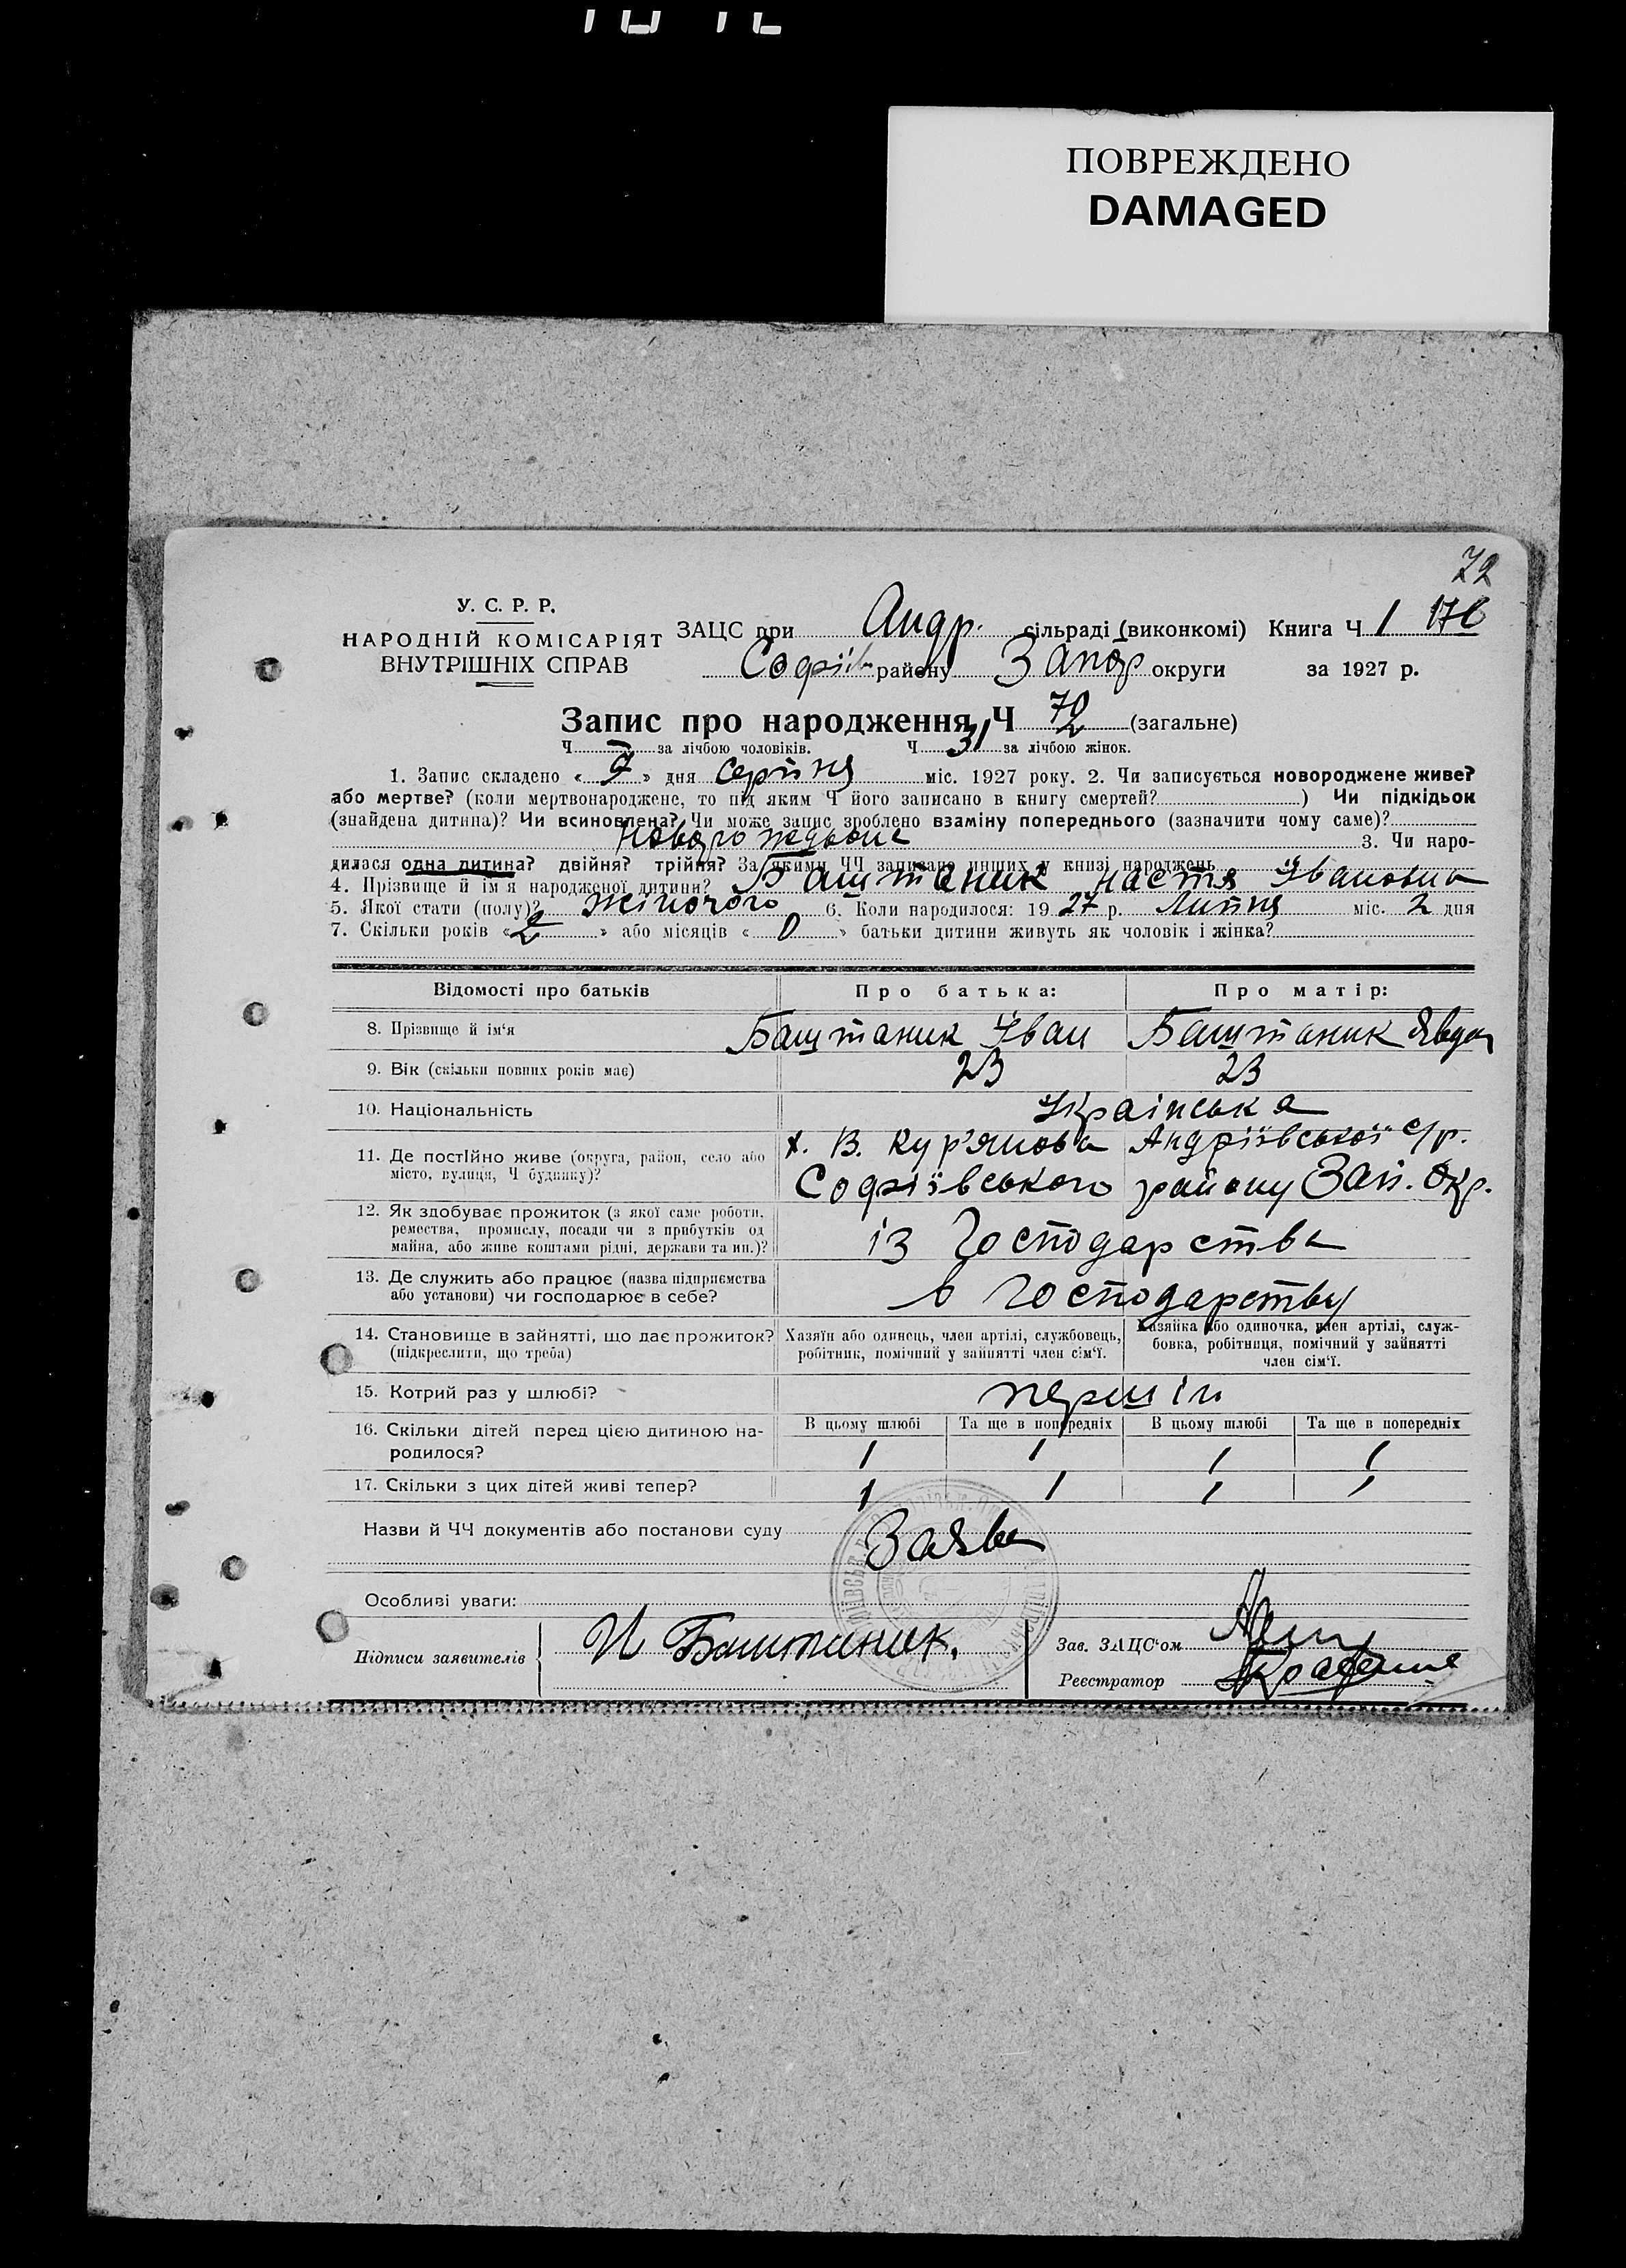 ПОВРЕЖДЕНО
DAMAGED
72
У. С. Р. Р.
НАРОДНІЙ КОМІСАРІЯТ
ВНУТРІШНІХ СПРАВ
ЗАЦС при Андр. сільраді (виконкомі) Книга Ч 1 176
Софіїв району Запор округи за 1927 р.
Запис про народження Ч 72 (загальне)
Ч — за лічбою чоловіків. Ч 31 за лічбою жінок.
1. Запис складено « 7 » дня Серпня міс. 1927 року. 2. Чи записується новороджене живе?
або мертве? (коли мертвонароджене, то під яким Ч його записано в книгу смертей? ) Чи підкідьок
(знайдена дитина)? Чи всиновлена? Чи може запис зроблено взаміну попереднього (зазначити чому саме)?
3. Чи наро-
дилася одна дитина? двійня? трійня? За якими ЧЧ записано инших у книзі народжень
4. Прізвище й ім'я народженої дитини? Баштаник Настя Івановна
5. Якої стати (полу)? Жіночого 6. Коли народилося: 19 27 р. Липня міс. 2 дня
7. Скільки років « 2 » або місяців « 0 » батьки дитини живуть як чоловік і жінка?
Відомості про батьків Про батька: Про матір:
8. Прізвище й ім'я Баштаник Іван Баштаник Явдоя
9. Вік (скільки повних років має) 23 23
10. Національність Українська
11. Де постійно живе (округа, район, село або місто, вулиця, Ч будинку)? х. В. Кур'янова Андріївської с/р.
Софіївського району Зап. Окр.
12. Як здобуває прожиток (з якої саме роботи,
ремества, промислу, посади чи з прибутків од
майна, або живе коштами рідні, держави та ин.)? із Господарства
13. Де служить або працює (назва підприємства
або установи) чи господарює в себе? в Господарству
14. Становище в зайнятті, що дає прожиток?
(підкреслити, що треба)
Хазяїн або одинець, член артілі, службовець,
робітник, помічний у зайнятті член сім'ї.
Хазяйка або одиночка, член артілі, служ-
бовка, робітниця, помічний у зайнятті
член сім'ї.
15. Котрий раз у шлюбі? першім
В цьому шлюбі Та ще в попередніх В цьому шлюбі Та ще в попередніх
16. Скільки дітей перед цією дитиною на-
родилося? 1 1 1 1
17. Скільки з цих дітей живі тепер? 1 1 1 1
Назви й ЧЧ документів або постанови суду Заява
Особливі уваги:
Підписи заявителів И Баштаник.
Зав. ЗАЦС'ом
Реєстратор